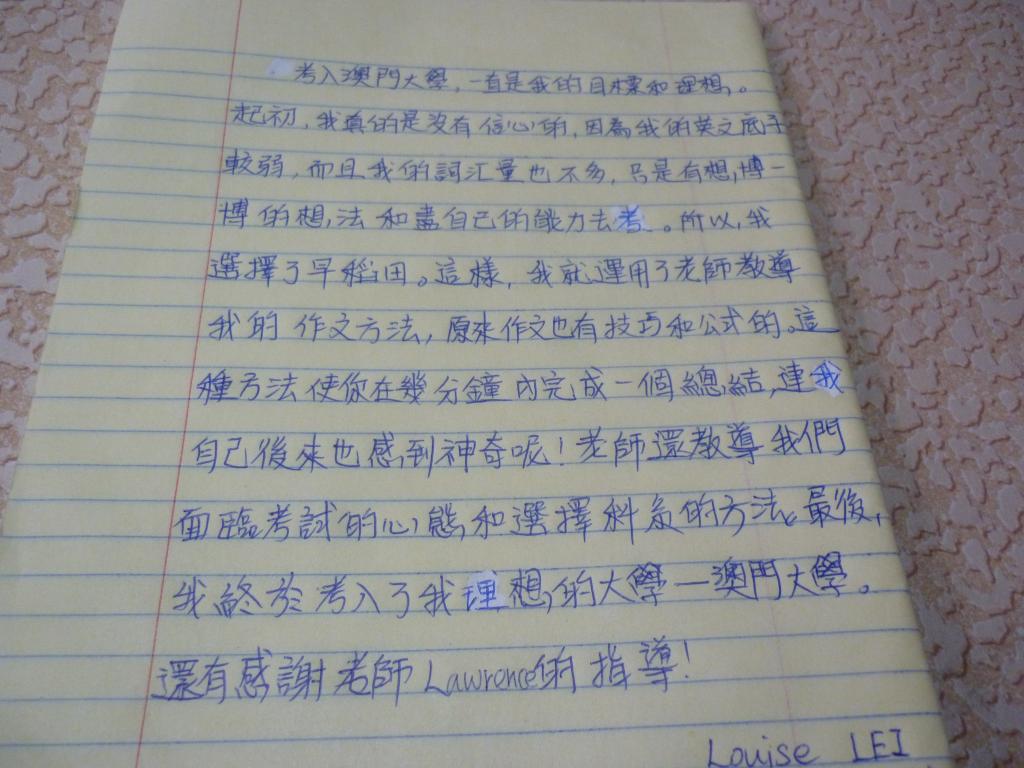 考入澳門大學，一直是我的目標和理想。
起初，我真的是沒有信心的，因為我的英文底子
較弱，而且我的詞汇量也不多，只是有想博一
博的想法和盡自己的能力去考。所以，我
選擇了早稻田。這樣，我就運用了老師教導
我的作文方法，原來作文也有技巧和公式的。這
種方法使你在幾分鐘內完成一個總結，連我
自己後來也感到神奇呢！老師還教導我們
面臨考試的心態和選擇科系的方法。最後，
我終於考入了我理想的大學—澳門大學。
還有感謝老師Lawrence的指導！
Louise LEI